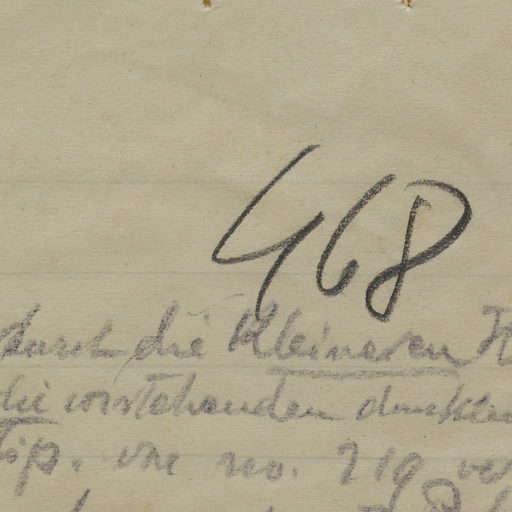 468
durch die Kleineren
die vorstehenden dunklen
Tip. vne no. 219 ver